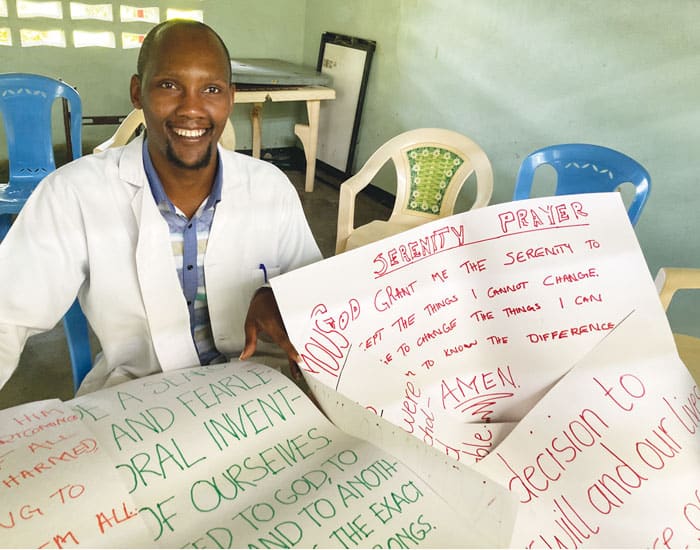 SERENITY PRAYER
GOD GRANT ME THE SERENITY TO
EPT THE THINGS I CANNOT CHANGE.
E TO CHANGE THE THINGS I CAN
TO KNOW THE DIFFERENCE
AMEN.
were
HIM
TCOMING
F ALL
HARMED
NG TO
EM ALL.
E A SEA
AND FEARLE
ORAL INVENT-
OF OURSELVES.
TED TO GOD, TO
AND TO ANOTH-
S THE EXACT
ONGS.
decision to
will and our live